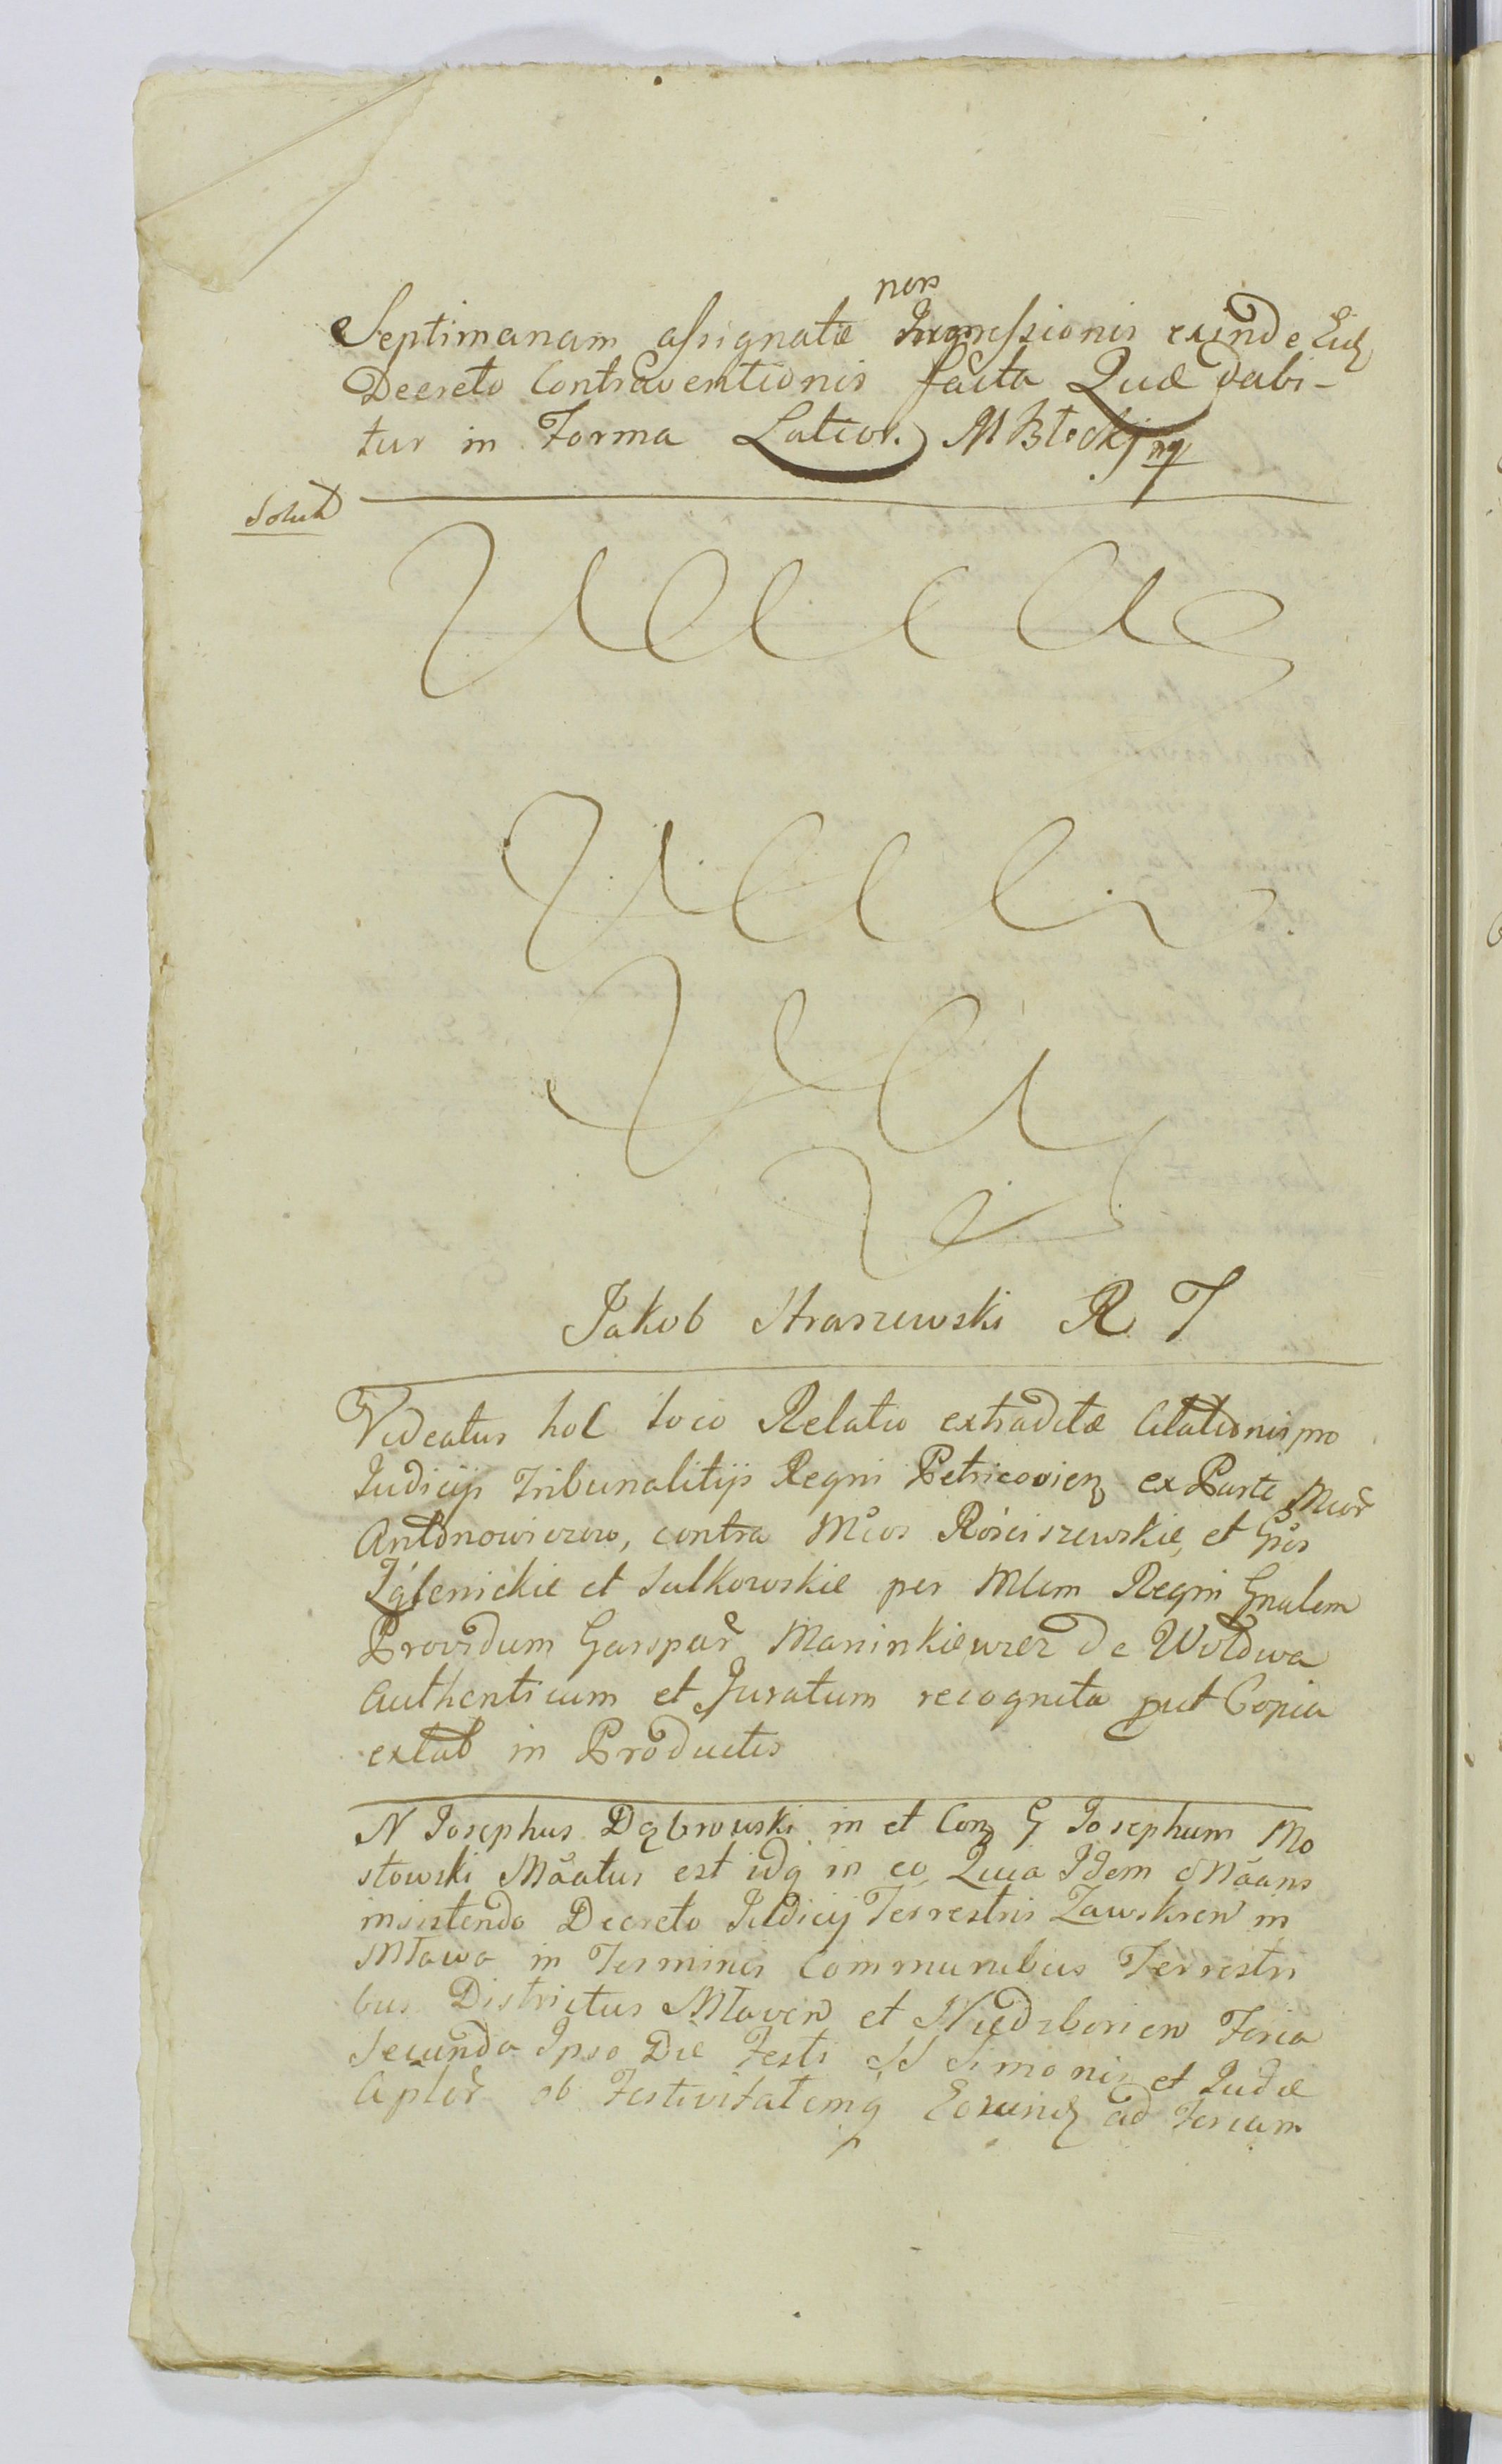 non
Septimanam assignatæ Ingressionis exinde Eidz
Decreto Contraventionis facta Quæ dabi-
tur in Forma Latior. M Błocki mp
Solut
Jakob Straszewski R T
Videatur hoc loco Relatio extraditæ Citationis pro
Judicijs Tribunalitijs Regni Petricovienz ex Parte Mcor
Antonowiczow, contra Mcos Rościszewskie, et Gsos
Zglenickie et Sulkowskie per Mlem Regni Gnalem
Providum Gaspar Maninkiewicz de Wold​wa
Authenticum et Juratum recognita prut Copia
extat in Productis
N Josephus Dąbrowski in et Conz G Josephum Mo
stowski Mãatus est idq in eo Quia Idem Mãans
insistendo Decreto Judicij Terrestris Zawskren in
Mława in Terminis Communibus Terrestri
bus Districtus Mlaven et Niedzborien Feria
Secunda Ipso Die Festi SS Simonis et Judæ
Aplor ob Festivitatemq Eorundz ad Feriam